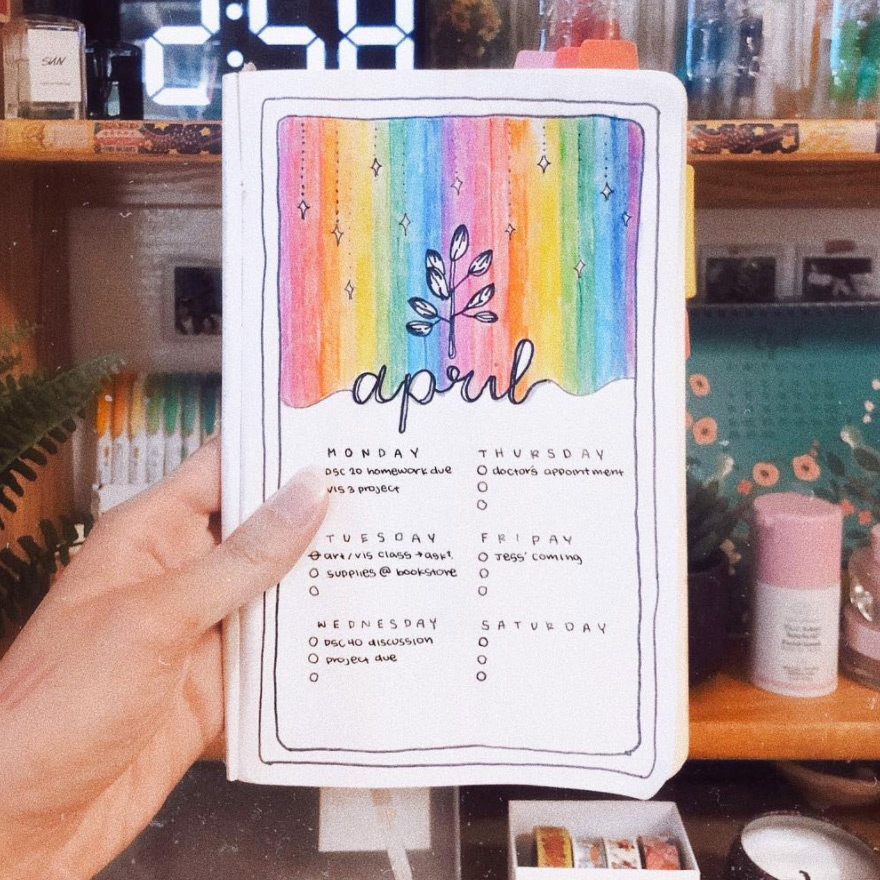 SUN
april
MONDAY
DSC 20 homework due
VIS 3 project
TUESDAY
art/vis class → ask?
supplies @ bookstore
WEDNESDAY
DSC 40 discussion
project due
THURSDAY
doctor's appointment
FRIDAY
Jess' coming
SATURDAY